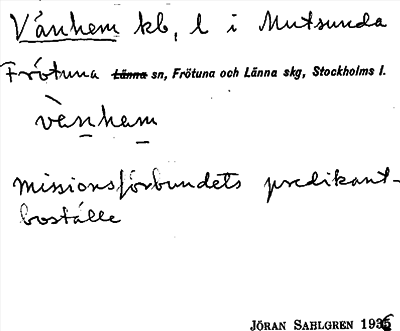 Vånhem kb, l i Mutsunda
Frötuna Länna sn, Frötuna och Länna skg, Stockholms l.
vànham
missionsförbundets predikant-
boställe
JÖRAN SAHLGREN 1936